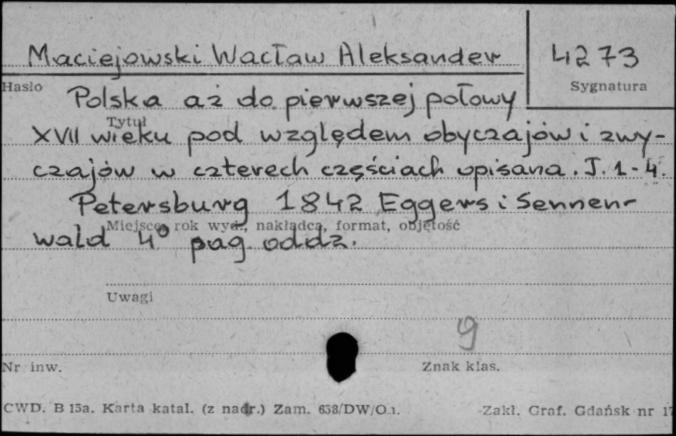 Maciejowski Wacław Aleksander
4273
Hasło
Sygnatura
Polska aż do pierwszej połowy
Tytuł
XVII wieku pod względem obyczajów i zwy-
czajów w czterech częściach opisana. T. 1-4.
Petersburg 1842 Eggers i Sennen-
Miejsce, rok wyd., nakładca, format, objętość
wald 4° pag. oddz.
Uwagi
9
Nr inw.
Znak klas.
CWD. B 15a. Karta katal. (z nadr.) Zam. 658/DW/O.1.
Zakł. Graf. Gdańsk nr